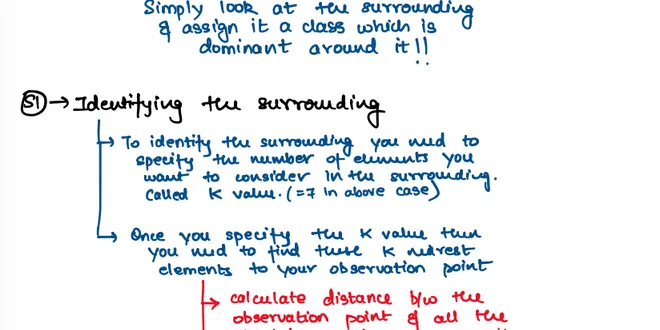 Simply look at the surrounding
& assign it a class which is
dominant around it!!
S1 → Identifying the surrounding
→ To identify the surrounding you need to
specify the number of elements you
want to consider in the surrounding.
Called K value. (=7 in above case)
→ Once you specify the K value then
you need to find these K nearest
elements to your observation point
→ calculate distance b/w the
observation point & all the